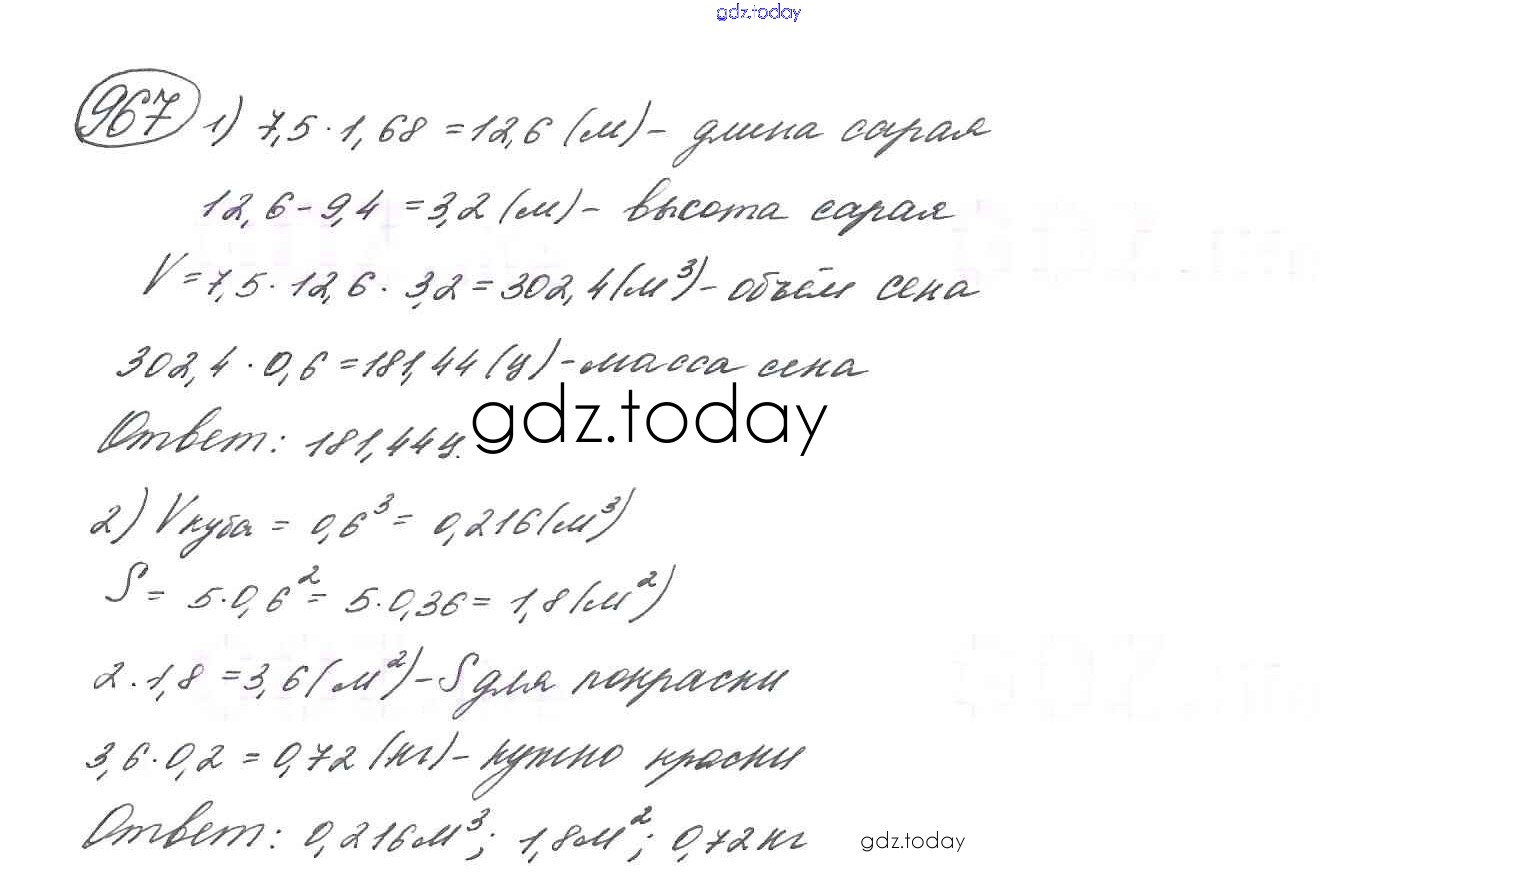 gdz.today
967 1) 7,5 · 1,68 = 12,6 (м) - длина сарая
12,6 - 9,4 = 3,2 (м) - высота сарая
V = 7,5 · 12,6 · 3,2 = 302,4 (м³) - объём сена
302,4 · 0,6 = 181,44 (ц) - масса сена
gdz.today
Ответ: 181,44 ц.
2) V куба = 0,6³ = 0,216 (м³)
S = 5 · 0,6² = 5 · 0,36 = 1,8 (м²)
2 · 1,8 = 3,6 (м²) - S для покраски
3,6 · 0,2 = 0,72 (кг) - нужно краски
Ответ: 0,216 м³; 1,8 м²; 0,72 кг
gdz.today